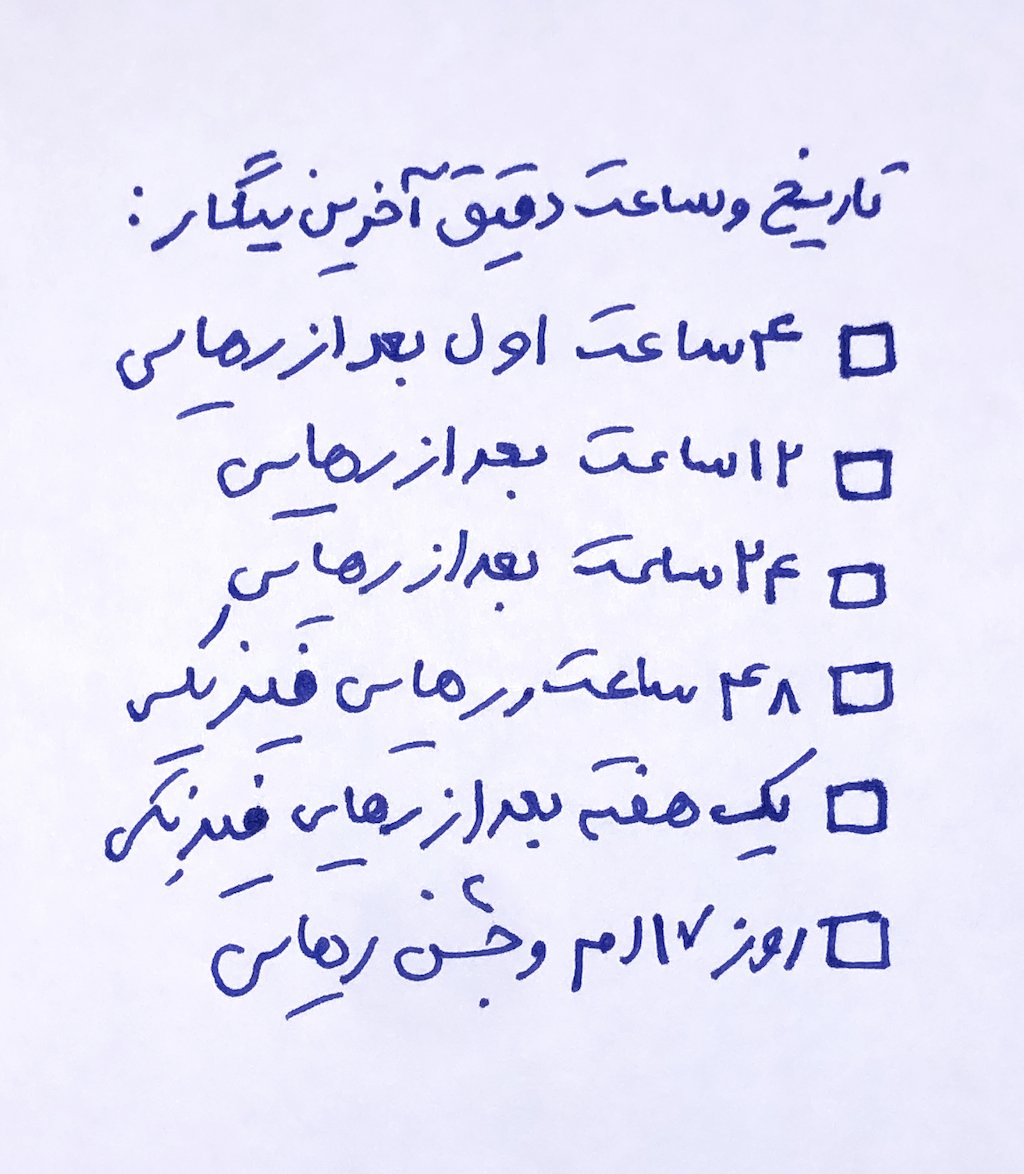 تاریخ و ساعت دقیق آخرین سیگار :
☐ ۴ ساعت اول بعد از رهایی
☐ ۱۲ ساعت بعد از رهایی
☐ ۲۴ ساعت بعد از رهایی
☐ ۴۸ ساعت و رهایی فیزیکی
☐ یک هفته بعد از رهایی فیزیکی
☐ روز ۱۷ ام و جشن رهایی